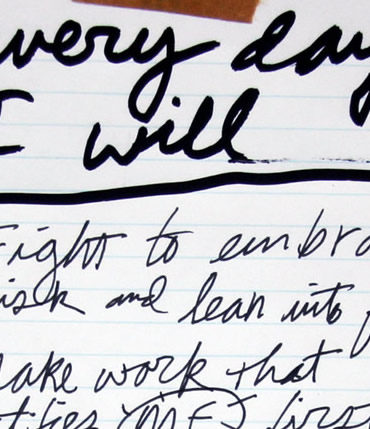 very day
I will
Fight to embra
isk and lean into
ake work that
(ME) first